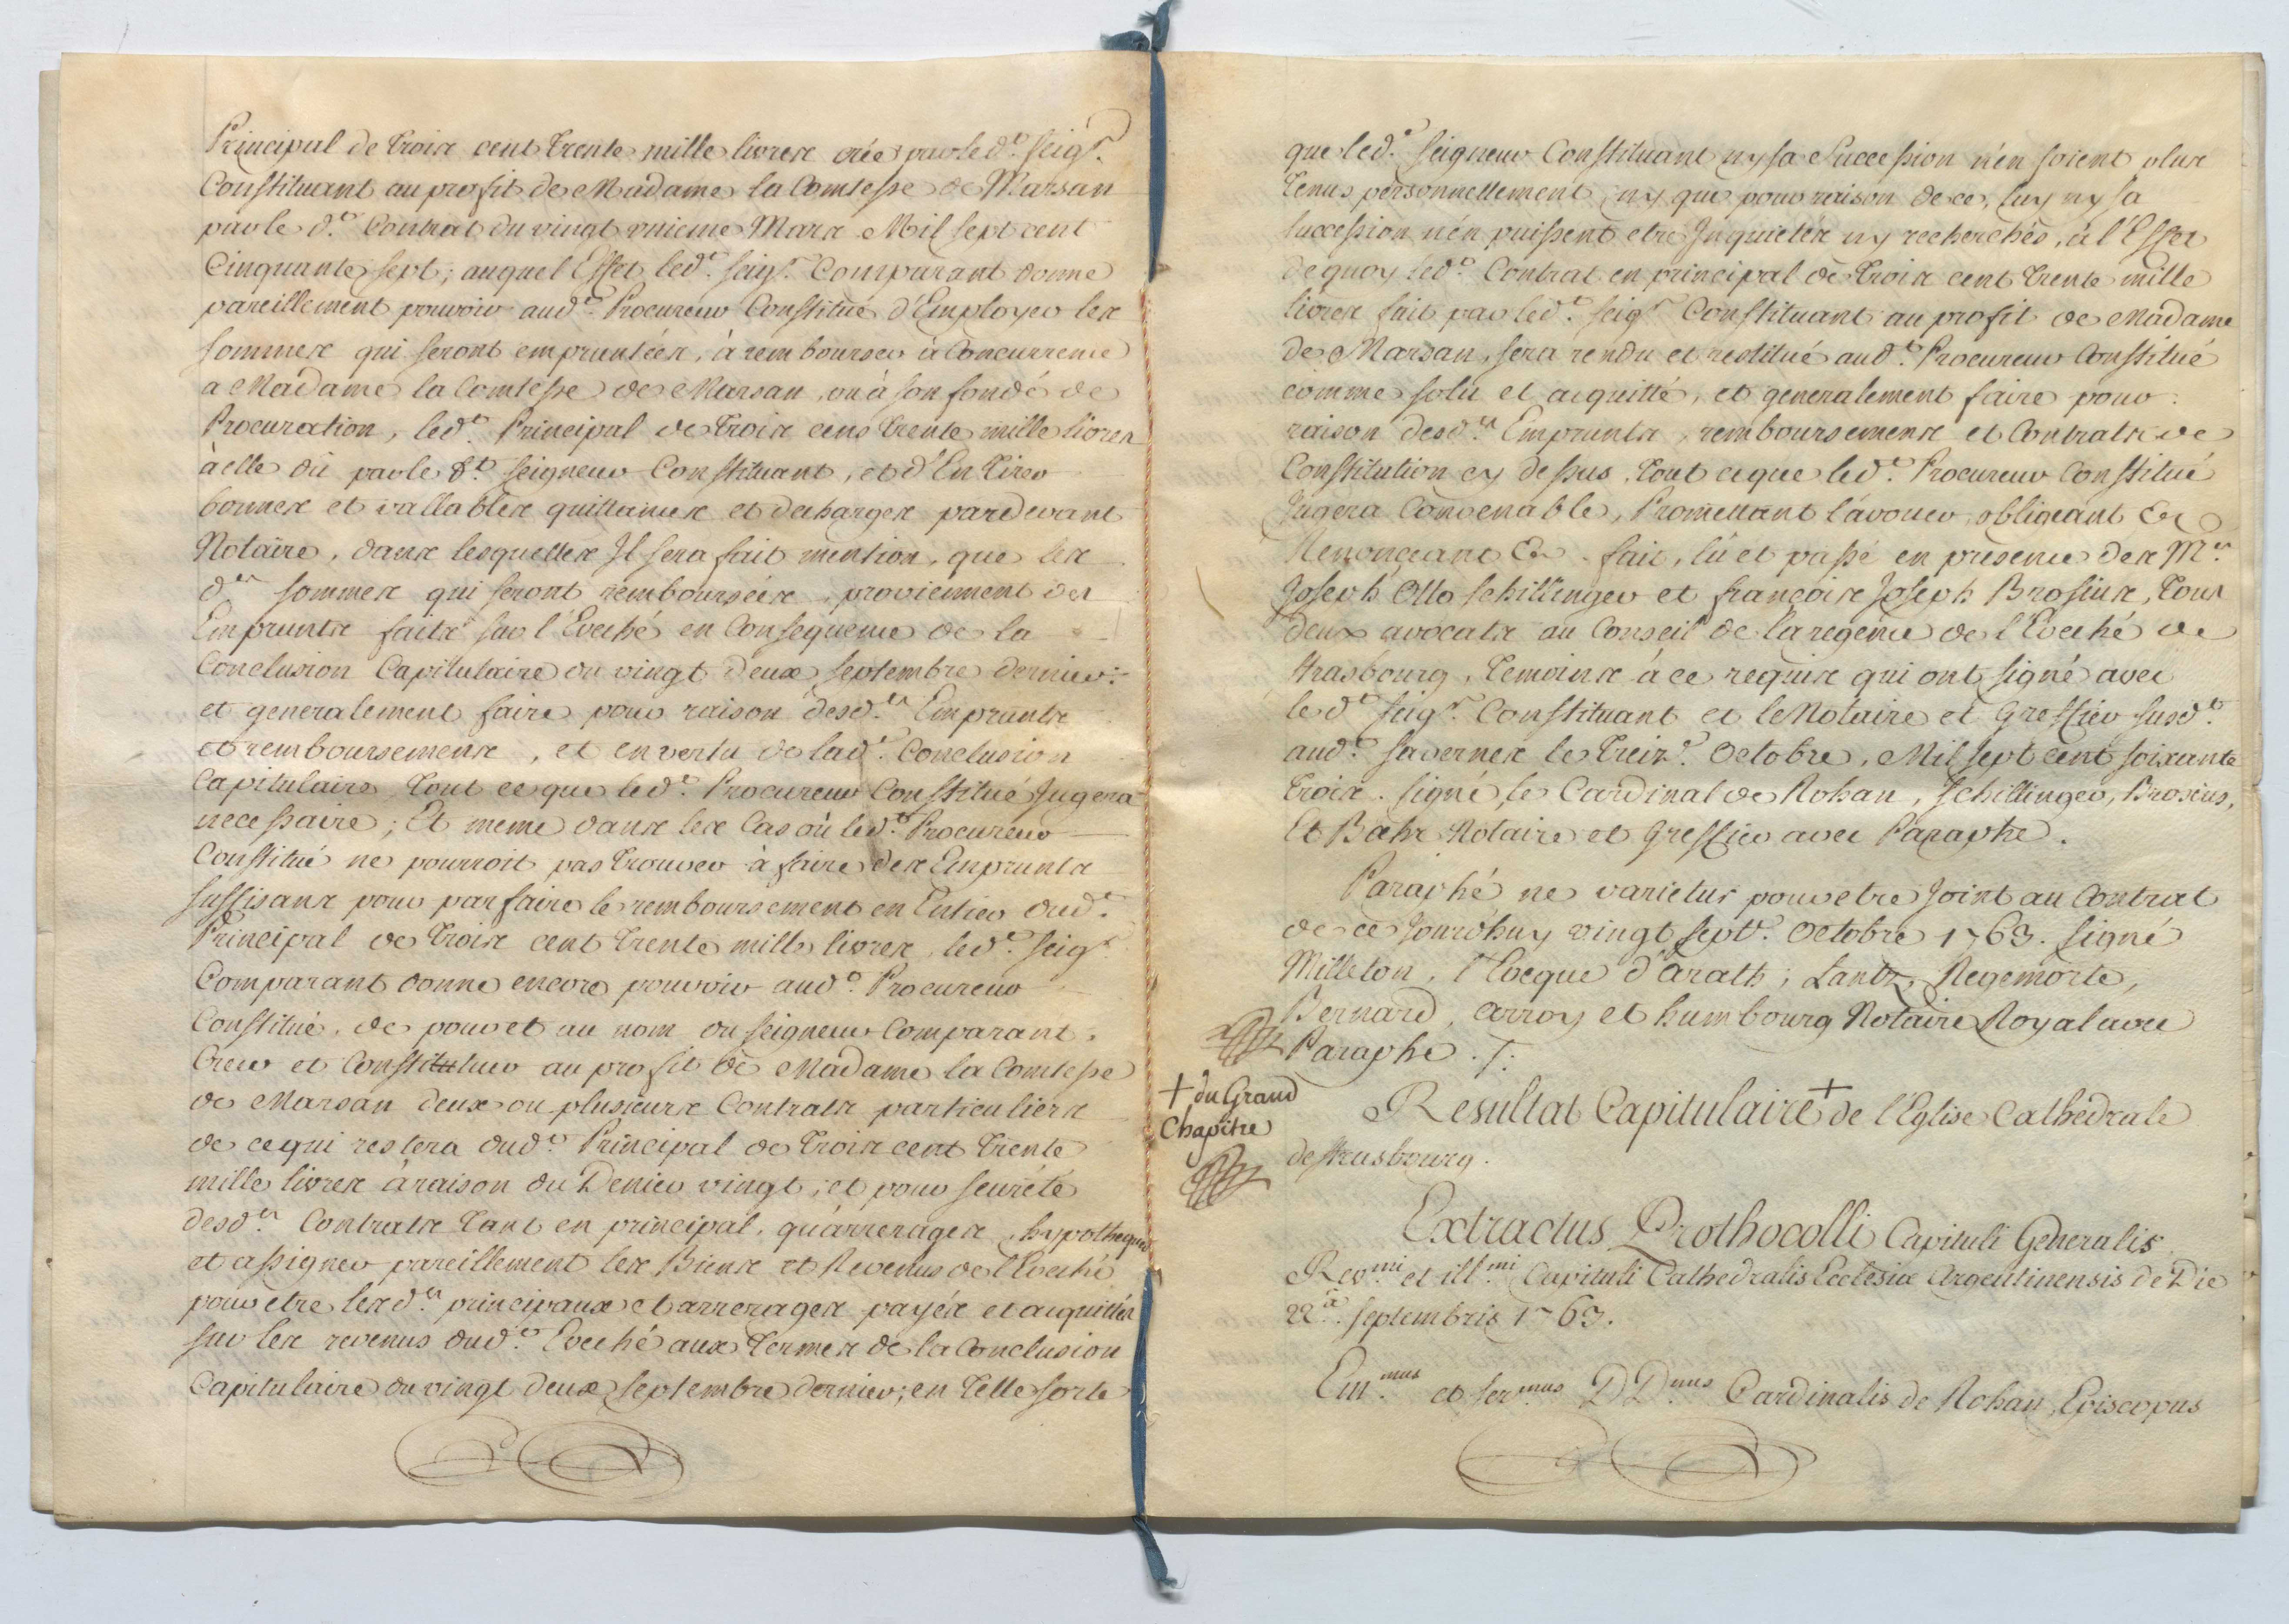 Principal de Trois cent trente mille livres créé par led.t Seig.r
Constituant au profit de Madame la Comtesse de Marsan
par le d.t Contrat du vingt unieme Mars Mil sept cent
Cinquante sept; auquel Effet led.t Seig.r Comparant donne
pareillement pouvoir aud.t Procureur Constitué d'Employer les
sommes qui seront empruntées, à rembourser à Concurrence
a Madame la Comtesse de Marsan, ou à son fondé de
Procuration, led.t Principal de Trois cens trente mille livres
à elle dû par le d.t Seigneur Constituant, et d'En tirer
bonnes et vallables quittances et decharges pardevant
Notaire, dans lesquelles Il sera fait mention, que les
d.es sommes qui seront remboursées, proviennent des
Emprunts faits sur l'Eveché en Consequence de la
Conclusion Capitulaire du vingt deux Septembre dernier:
et generalement faire pour raison desd.es Emprunts
et remboursemens, et en vertu de lad.e Conclusion
Capitulaire, tout ce que led.t Procureur Constitué Jugera
necessaire; Et meme dans les Cas où led.t Procureur
Constitué ne pourroit pas trouver à faire des Emprunts
suffisans pour parfaire le remboursement en Entier dud.t
Principal de Trois cent trente mille livres, led.t Seig.r
Comparant donne encore pouvoir aud.t Procureur
Constitué, de pour et au nom du Seigneur Comparant,
Creer et Constituer au profit de Madame la Comtesse
de Marsan deux ou plusieurs Contrats particuliers
de ce qui restera dud.t Principal de Trois cent trente
mille livres à raison du Denier vingt, et pour seureté
desd.ts Contrats tant en principal, qu'arrerages, hypothequer
et assigner pareillement les Biens et Revenus de l'Eveché
pour etre lesd.ts principaux et arrerages payés et acquittés
sur les revenus dud.t Eveché aux termes de la Conclusion
Capitulaire du vingt deux Septembre dernier; en telle sorte
que led.t Seigneur Constituant ny sa Succession n'en soient plus
tenus personnellement, ny que pour raison de ce, luy ny sa
succession n'en puissent etre Inquietés ny recherchés, à l'Effet
de quoy led.t Contrat en principal de Trois cent trente mille
livres fait par led.t Seig.r Constituant au profit de Madame
de Marsan, sera rendu et restitué aud.t Procureur Constitué
comme solu et acquitté, et generalement faire pour
raison desd.ts Emprunts, remboursemens et Contrats de
Constitution cy dessus, tout ce que led.t Procureur Constitué
Jugera Convenable, Promettant l'avouer, obligeant &c
Renonceant &c. fait, lû et passé en presence des M.es
Joseph Otto Schillinger et françois Joseph Brosius, tous
deux avocats au Conseil de la regence de l'Eveché de
Strasbourg, temoins à ce requis qui ont signé avec
le d.t Seig.r Constituant et le Notaire et Greffier susd.t
aud.t Savernes le Treiz.e Octobre, Mil sept cent soixante
trois. signé, le Cardinal de Rohan, Schillinger, Brosius,
Et Bæhr Notaire et Greffier avec Paraphe.
Paraphé ne varietur pour etre Joint au Contrat
de ce Jourdhuy vingt sept.e Octobre 1763. signé
Milleton, l'Evêque d'Arath, Lantz, Regemorte,
Bernard, Arroy et humbourg Notaire Royal avec
Paraphe ./.
+ du Grand
Chapitre
Resultat Capitulaire + de l'Eglise Cathedrale
de Strasbourg.
Extractus Prothocolli Capituli Generalis
Rev.mi et ill.mi Capituli Cathedralis Ecclesiæ Argentinensis de Die
22.a Septembris 1763.
Em.mus et Ser.mus D D.nus Cardinalis de Rohan, Episcopus